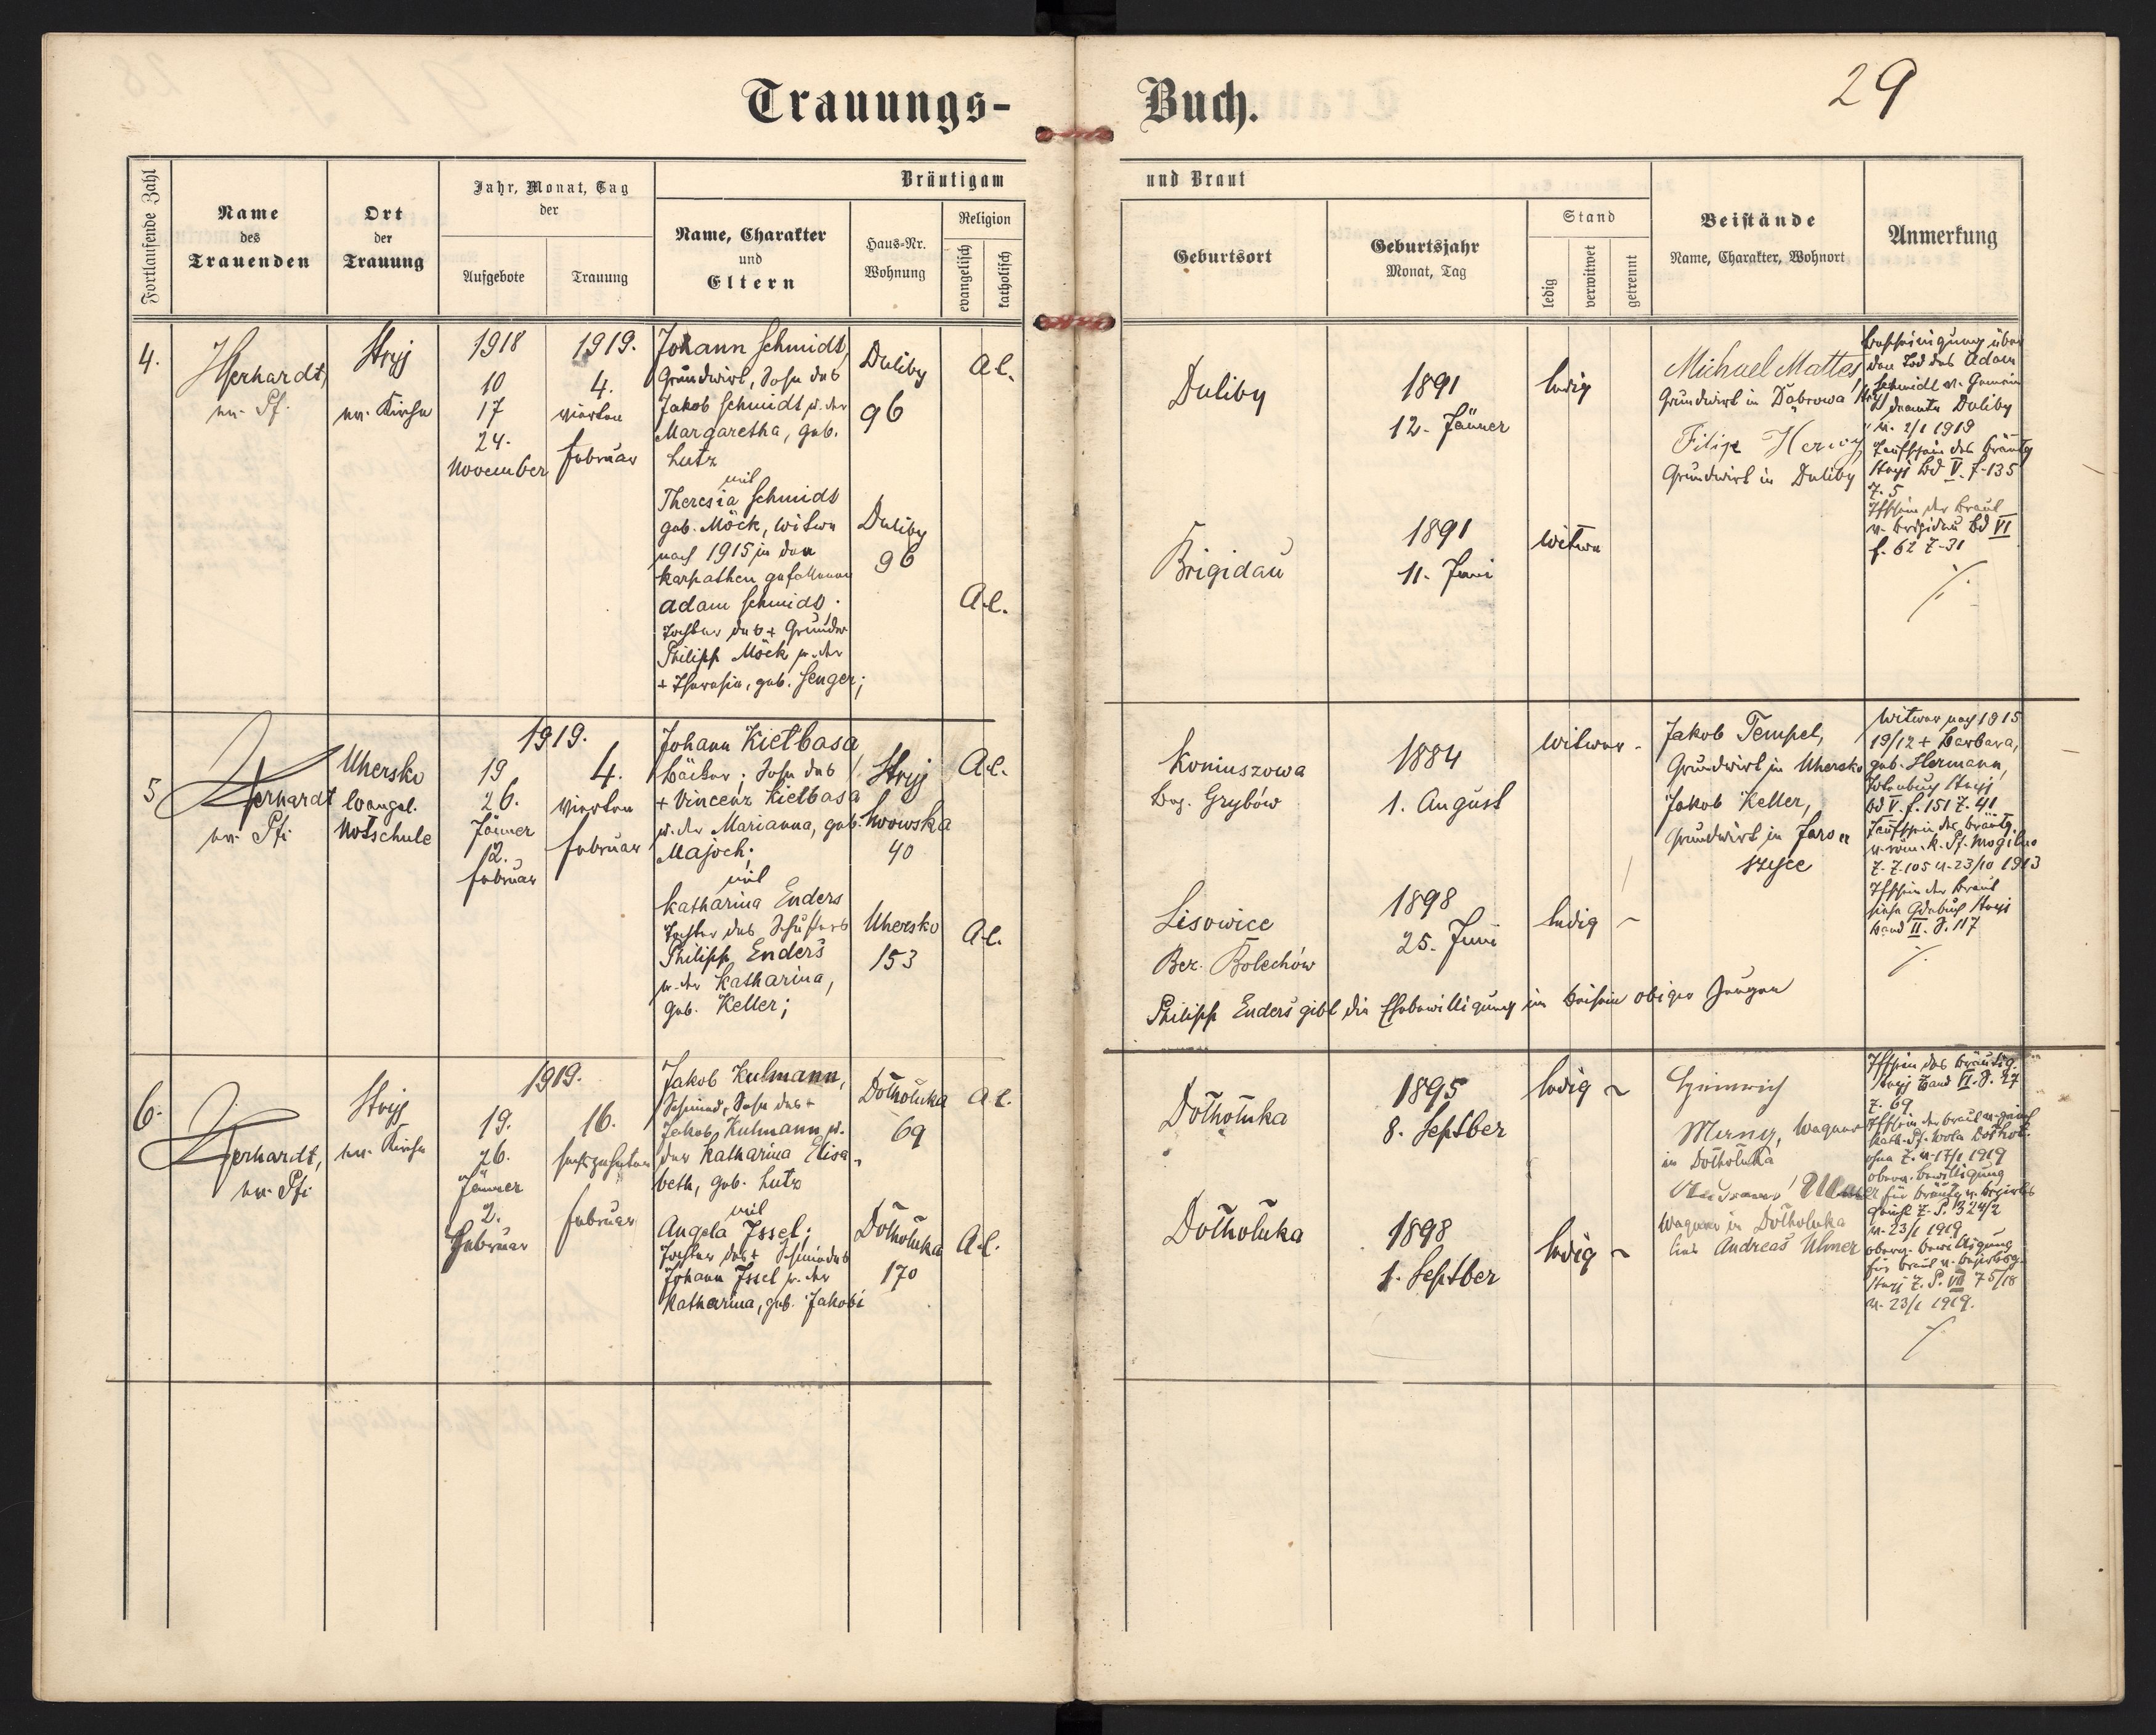 29
Trauungs-Buch.
Fortlaufende Zahl
Name
des
Trauenden
Ort
der
Trauung
Jahr, Monat, Tag
der
Aufgebote
Trauung
Bräutigam
und Braut
Name, Charakter
und
Eltern
Haus-Nr.
Wohnung
Religion
evangelisch
katholisch
Geburtsort
Geburtsjahr
Monat, Tag
Stand
ledig
verwitwet
getrennt
Beistände
Name, Charakter, Wohnort
Anmerkung
4.
Gerhardt,
ev. Pf.
Stryj
ev. Kirche
1918
10
17
24.
November
1919.
4.
vierten
Februar
Johann Schmidt,
Grundwirt, Sohn des
Jakob Schmidt u. der
Margaretha, geb.
Lutz
mit
Theresia Schmidt
geb. Möck, Witwe
nach 1915 in den
Karpathen gefallenen
Adam Schmidt;
Tochter des + Grundw.
Philipp Möck u. der
+ Theresia, geb. Senger;
Duliby
96
Duliby
96
A.C.
A.C.
Duliby
Brigidau
1891
12. Jänner
1891
11. Juni
ledig
Witwe
Michael Mattes,
Grundwirt in Dąbrowa
Filip
Grundwirt in Duliby
Bescheinigung über
den Tod des Adam
Schmidt v. Gemein
Duliby
v. 2/1 1919
Taufschein des Bräutg
Stryj Bd V. f. 135
Z. 5
Tfschein der Braut
v. Brigidau Bd VI
f. 62 Z. 31
5
Gerhardt
ev. Pf.
Uhersko
Evangel.
Notschule
1919.
19
26.
Jänner
12.
Februar
4.
vierten
Februar
Johann Kiełbasa
Bäcker; Sohn des
+ Vincenz Kiełbasa
u. der Marianna, geb.
Majoch;
mit
Katharina Enders
Tochter des Schusters
Philipp Enders
u. der Katharina,
geb. Keller;
Stryj
Lwowska
40
Uhersko
153
A.C.
A.C.
Koniuszowa
Bez. Grybów
Lisowice
Bez. Bolechów
1884
1. August
1898
25. Juni
Witwer
ledig
Jakob Tempel,
Grundwirt in Uhersko
Jakob Keller,
Grundwirt in Jaro
szyce
Witwer nach 1915
19/12 + Barbara,
geb. Hermann,
Totenbuch Stryj
Bd V. f. 151 Z. 41
Taufschein des Bräutg.
v. röm. k. Pf. Mogilno
Z. 105 v. 23/10 1913
Tfschein der Braut
siehe Gdebuch Stryj
Band II. S. 117
Philipp Enders gibt die Ehebewilligung im Beisein obiger Zeugen
6.
Gerhardt,
ev. Pf.
Stryj
ev. Kirche
1919.
19.
26.
Jänner
2.
Februar
16.
sechzehnten
Februar
Jakob Kulmann,
Schmied, Sohn des +
Jakob Kulmann u.
der Katharina Elisa
beth, geb. Lutz
mit
Angela Issel;
Tochter des + Schmiedes
Johann Issel u. der
Katharina, geb. Jakobi
Dołhołuka
69
Dołhołuka
170
A.C.
A.C.
Dołhołuka
Dołhołuka
1895
8. Septber
1898
1. Septber
ledig
ledig
Heinrich
Wagner
in Dołhołuka
Wagner in Dołhołuka
Andreas Ulmer
Tfschein des Bräutig.
Stryj Band VI. S. 27
Z. 69
Tfschein der Braut v. röm.
kath. Pf. Wola Dołhoł.
ohne Z. v. 17/1 1919
oberv. Bewilligung
für Bräutg v. Bezirks
gericht Z. P. 324/2
v. 23/1 1919
oberv. Bewilligung
für Braut v. Bezirksg.
Stryj Z. P. VII 75/18
v. 23/1 1919.